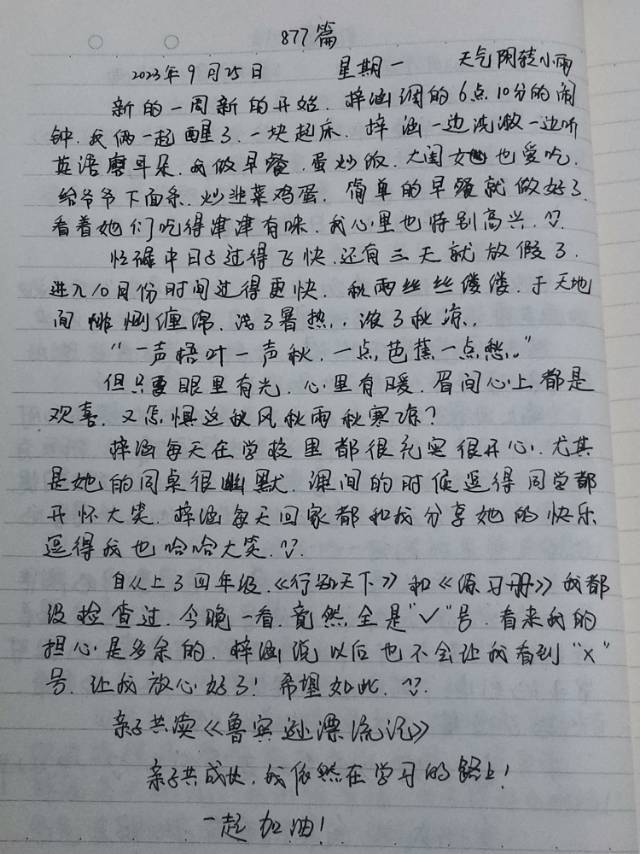 877篇
2023年9月25日 星期一 天气阴转小雨
新的一周新的开始. 梓涵调的6点10分的闹
钟. 我俩一起醒了. 一块起床. 梓涵一边洗漱一边听
英语磨耳朵. 我做早餐. 蛋炒饭. 大闺女也爱吃.
给爷爷下面条. 炒韭菜鸡蛋. 简单的早餐就做好了.
看着她们吃得津津有味. 我心里也特别高兴.
忙碌中日子过得飞快. 还有三天就放假了.
进入10月份时间过得更快. 秋雨丝丝缕缕. 于天地
间悱恻缠绵. 浅了暑热.. 浓了秋凉..
“一声梧叶一声秋. 一点芭蕉一点愁..”
但只要眼里有光. 心里有暖. 眉间心上都是
欢喜. 又怎惧这秋风秋雨秋寒凉?
梓涵每天在学校里都很充实很开心. 尤其
是她的同桌很幽默. 课间的时候逗得同学都
开怀大笑. 梓涵每天回家都和我分享她的快乐
逗得我也哈哈大笑.
自从上了四年级.《行知天下》和《练习册》我都
没检查过. 今晚一看. 竟然全是“✓”号. 看来我的
担心是多余的. 梓涵说以后也不会让我看到“×”
号. 让我放心好了! 希望如此.
亲子共读《鲁宾逊漂流记》
亲子共成长. 我依然在学习的路上!
一起加油!